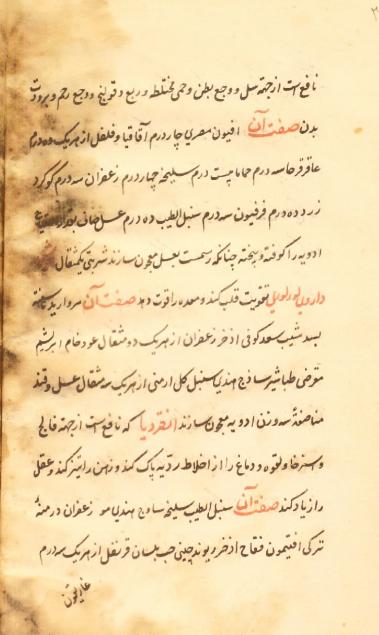 نافع است از جهة سل و وجع بطن و حمی مختلطه و ربع و قولنج و وجع رحم و برودت
بدن صفت آن افیون مصری چار درم آقاقیا و فلفل از هر یک ده درم
عاقرقرحا سه درم حماما بیست درم سلیخه چهار درم زعفران سه درم کوکرد
زرد ده درم فرفیون سه درم سنبل الطیب ده درم عسل صاف بوزن
ادویه را کوفته و بیخته چنانکه رسمست بعسل معجون سازند شربتی یکمثقال
داروی لولوی تقویت قلب کند و معده را قوت دهد صفت آن مروارید ناسفته
بسد شب سعد کوفی اذخر زعفران از هر یک دو مثقال عود خام ابریشم
مقرض طباشیر ساذج هندی سنبل کل ارمنی از هر یک سه مثقال عسل و قند
مناصفة سه وزن ادویه معجون سازند انقردیا که نافع است از جهة فالج
و استرخا و لقوه و دماغ را از اخلاط ردیه پاک کند و ذهن را تیز کند و عقل
را زیاد کند صفت آن سنبل الطیب سلیخه ساذج هندی مو زعفران درمنه
ترکی افتیمون فقاح اذخر ریوند چینی حب بلسان قرنفل از هر یک سه درم
غاریقون